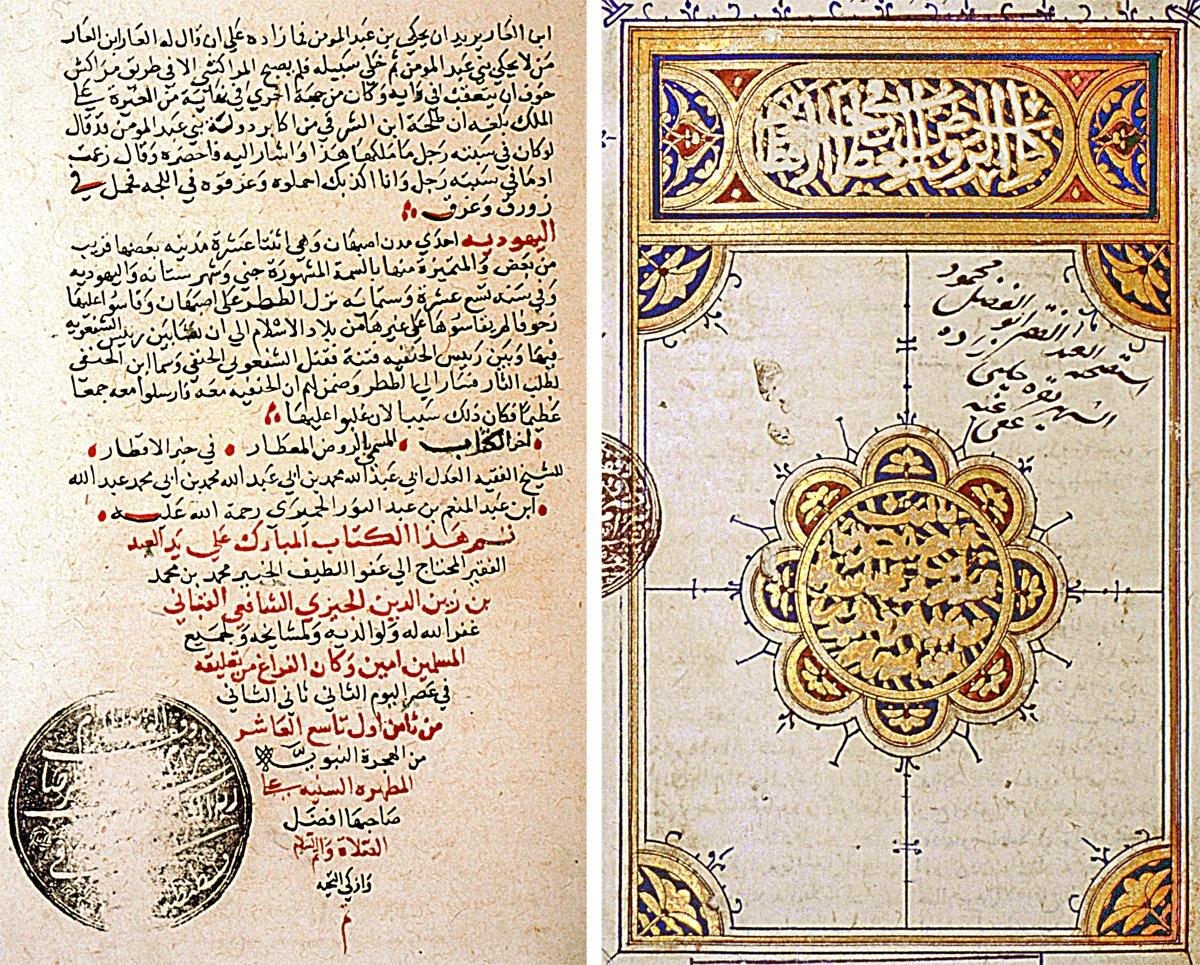 ابى العار يريد ان يحكى بن عبد المومن فما زاده على ان قال له العار ابن العار
من لا يحكى بني عبد المومن ثم خلى سبيله فلم يصبح المراكشي الا في طريق مراكش
خوف ان يتعقب وكان من جهة اخرى في نهاية من الغيرة على
الملك بلغه ان طلحة ابن الشرقي من اكابر دولة بني عبد المومن قد قال
لو كان في سبته رجل ما ملكها هذا واشار اليه فاحضره وقال زعمت
ان ما في سبته رجل وانا اكذبك احملوه وغرقوه في اللجه فحمل في
زورق وغرق
اليهوديه احدي مدن اصبهان وهي اثنتا عشرة مدينه بعضها قريب
من بعض والمتميزة منها بالسمة المشهورة جى وشهرستانه واليهوديه
وفي سنه تسع عشرة وستمايه نزل الططر على اصبهان وقاسوا عليها
زحوفا لم يقاسوها على غيرها من بلاد الاسلام الى ان كان بين رييس الشفعويه
فيها وبين رييس الحنفيه فتنة فقتل الشفعوي الحنفي وسما ابن الحنفي
لطلب الثار فسار الى الططر وضمن لهم ان الحنفيه معه وارسلوا معه جمعا
عظيما فكان ذلك سببا لان غلبوا عليها
اخر الكتاب المسمى بالروض المعطار في خبر الاقطار
للشيخ الفقيه العدل ابي عبد الله محمد بن ابي عبد الله محمد بن ابي محمد عبد الله
ابن عبد المنعم بن عبد النور الحميرى رحمة الله عليه
تم هذا الكتاب المبارك على يد العبد
الفقير المحتاج الى عفو اللطيف الخبير محمد بن محمد
بن زين الدين الجيزي الشافعي العناني
غفر الله له ولوالديه ولمشايخه ولجميع
المسلمين امين وكان الفراغ من تعليقه
في عصر اليوم الثاني ثاني الثاني
من ثامن اول تاسع العاشر
من الهجرة النبويه
المطهره السنيه على
صاحبها افضل
الصلاة واتم السلام
وازكى التحيه
م
كتاب الروض المعطار
محمود
ابو الفضل
العبد الفقير
الشهير بقره چلبى زاده
عفى عنه